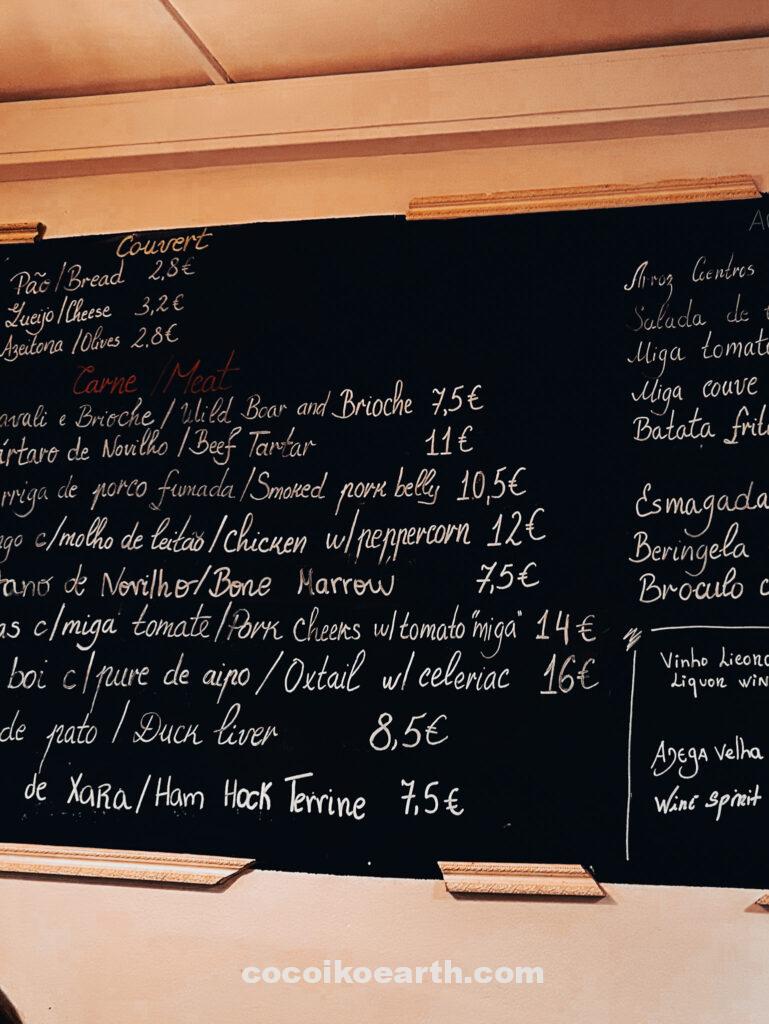 Couvert
Pão/Bread 2,8€
Queijo/Cheese 3,2€
Azeitona/Olives 2.8€
Carne/Meat
avali e Brioche/Wild Boar and Brioche 7,5€
ártaro de Novilho/Beef Tartar 11€
rriga de porco fumada/Smoked pork belly 10,5€
ngo c/molho de leitão/Chicken w/peppercorn 12€
tano de Novilho/Bone Marrow 7,5€
as c/miga tomate/Pork Cheeks w/tomato "miga" 14€
boi c/pure de aipo/Oxtail w/ celeriac 16€
de pato/Duck liver 8,5€
de Xara/Ham Hock Terrine 7,5€
A
Arroz Centros
Salada de t
Miga tomate
Miga couve
Batata frit
Esmagada
Beringela
Broculo c
Vinho Licoro
Liquor win
Adega Velha
Wine Spirit
cocoikoearth.com